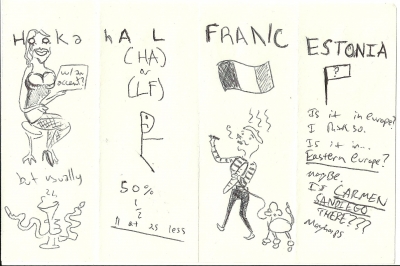 HooKa
w/ an
accent?
but usually
hAL
(HA)
or
(LF)
50%
1/2
FRANC
ESTONIA
?
Is it in europe?
I think so.
Is it in...
Eastern europe?
maybe.
Is CARMEN
SANDIEGO
THERE???
Mayhaps